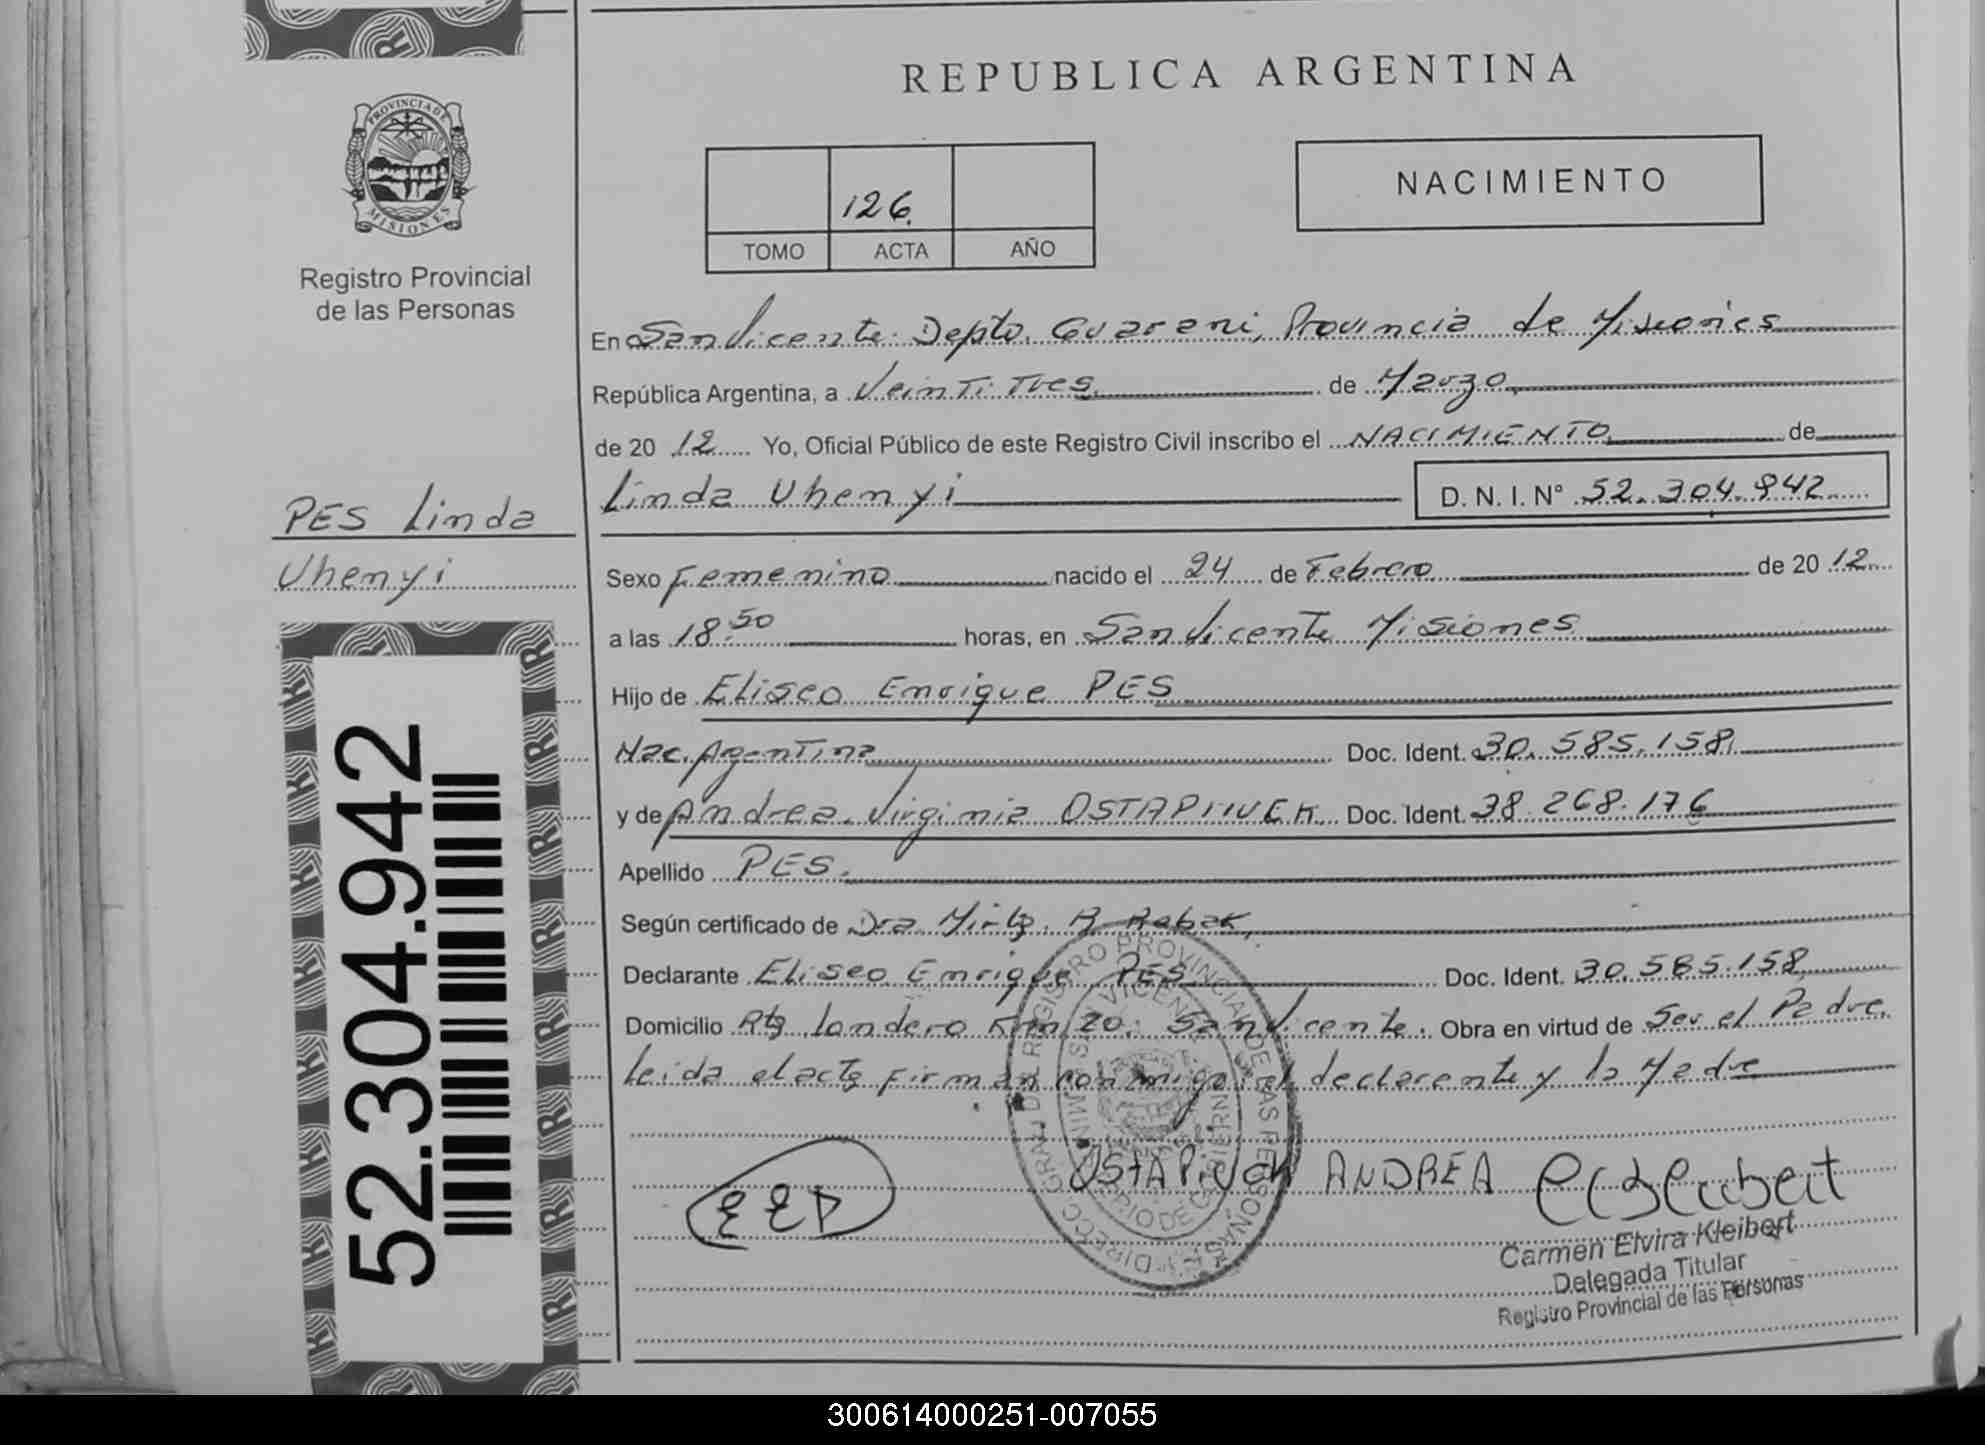 REPUBLICA ARGENTINA
PROVINCIA DE
MISIONES
Registro Provincial
de las Personas
126
TOMO ACTA AÑO
NACIMIENTO
En San Vicente Depto. Guarani, Provincia de Misiones
República Argentina, a Veinti Tres de Marzo
de 20 12 Yo, Oficial Público de este Registro Civil inscribo el NACIMIENTO de
Linda Uhenyi D. N. I. Nº 52.304.942
PES Linda
Uhenyi
Sexo Femenino nacido el 24 de Febrero de 20 12
a las 18:50 horas, en San Vicente Misiones
Hijo de Eliseo Enrique PES
Nac. Argentina Doc. Ident. 30.585.158
y de Andrea Virginia OSTAPIIUCK Doc. Ident. 38.268.176
Apellido PES.
Según certificado de Dra. R. Rabak,
Declarante Eliseo Enrique PES Doc. Ident. 30.585.158
Domicilio Km 20. San Vicente. Obra en virtud de Ser el Padre.
Leida el acta firman conmigo el declarante y la Madre
52.304.942
EED
OSTAPIUCK ANDREA
Carmen Elvira Kleibert
Delegada Titular
Registro Provincial de las Personas
300614000251-007055